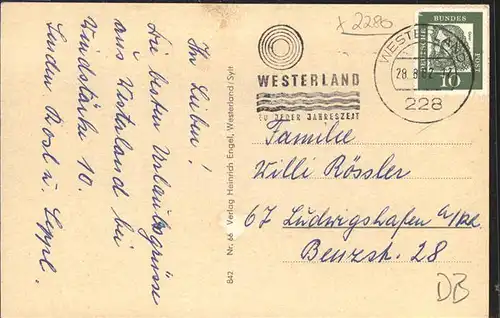 Ihr Lieben!
Die besten Urlaubsgrüsse
aus Westerland bei
Windstärke 10.
senden Rosl u. Seppl.
842 Nr. 66 Verlag Heinrich Engel, Westerland/Sylt
x 2280
WESTERLAND
ZU JEDER JAHRESZEIT
WESTERLAND
28.8.62
228
DEUTSCHE BUNDESPOST
10
Familie
Willi Rössler
67 Ludwigshafen a/Rh.
Benzstr. 28
DB